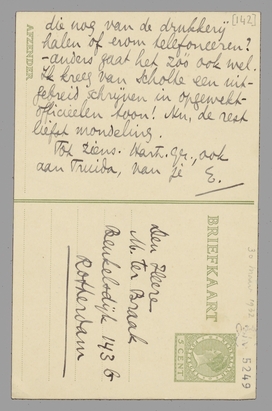 [142]
die nog van de drukkerij
halen of erom telefoneeren?
- anders gaat het zóó ook wel.
Ik kreeg van Scholte een uit-
gebreid schrijven in opgewekt-
officieelen toon! Nu, de rest
liefst mondeling.
Tot ziens. Hart. gr., ook
aan Truida, van je E.
AFZENDER
BRIEFKAART
5 CENT
Den Heere
M. Ter Braak
Beukelsdijk 143 B
Rotterdam
5249